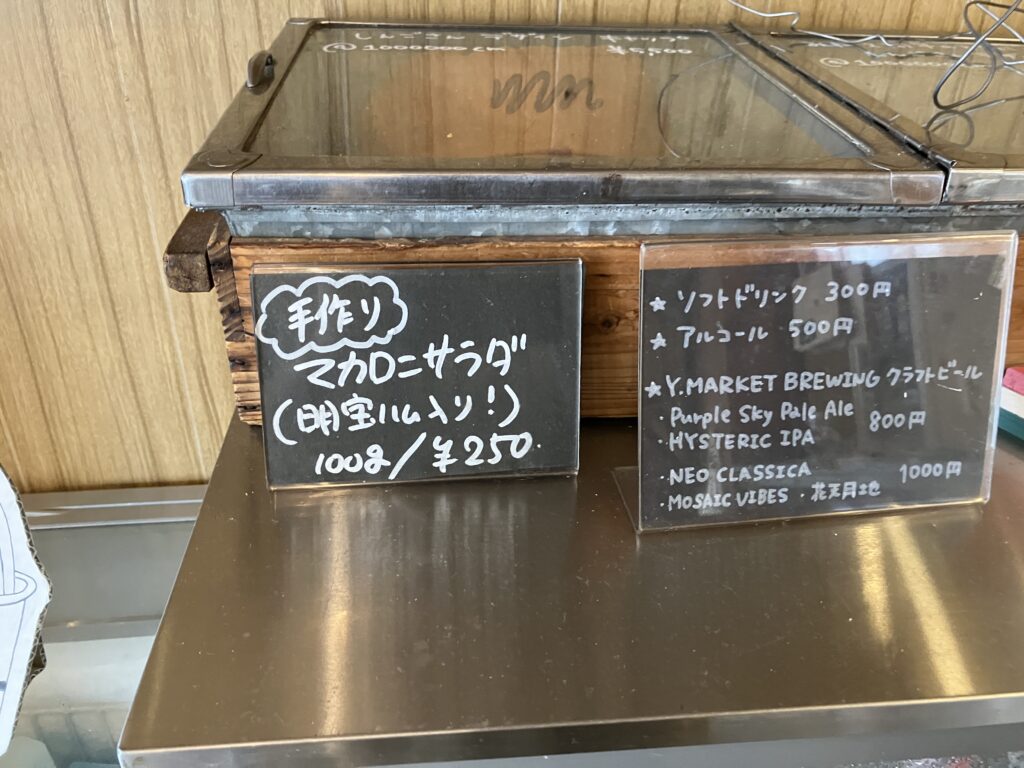 @1000000cm
手作り
マカロニサラダ
(明宝ハム入り!)
100g/¥250.
★ ソフトドリンク 300円
★ アルコール 500円
★ Y.MARKET BREWING クラフトビール
・Purple Sky Pale Ale 800円
・HYSTERIC IPA
・NEO CLASSICA 1000円
・MOSAIC VIBES ・花天月地